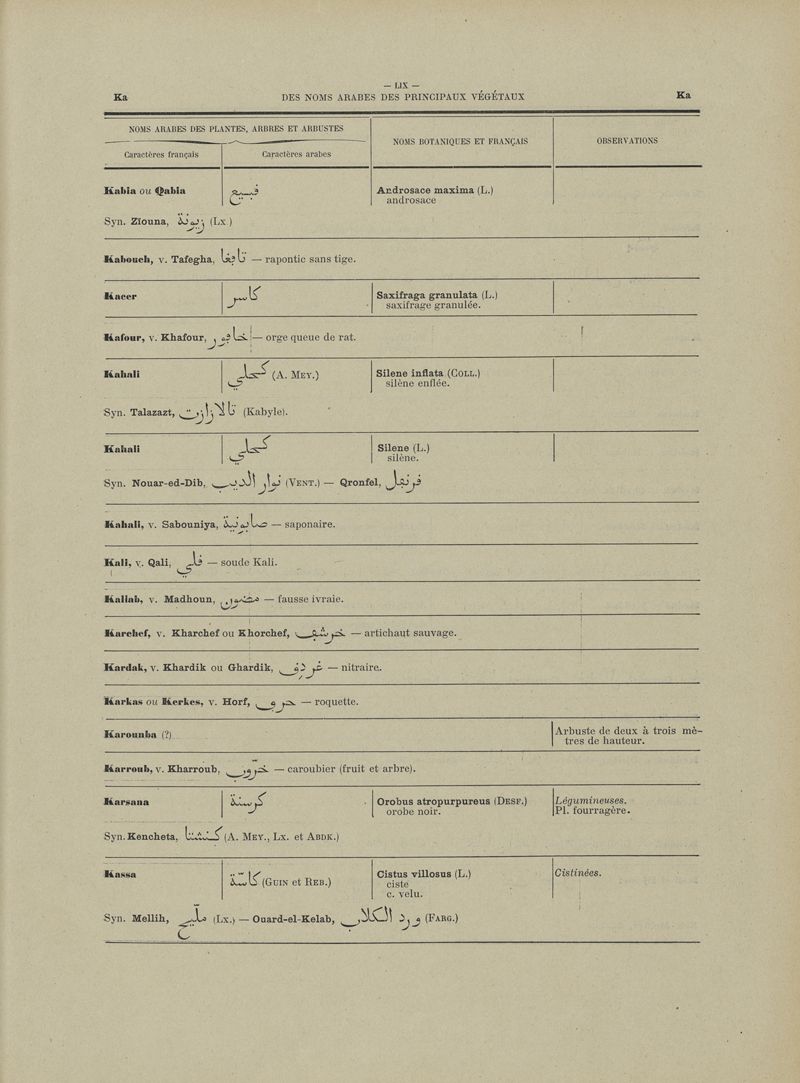 — LIX —
Ka DES NOMS ARABES DES PRINCIPAUX VÉGÉTAUX Ka
NOMS ARABES DES PLANTES, ARBRES ET ARBUSTES
NOMS BOTANIQUES ET FRANÇAIS
OBSERVATIONS
Caractères français
Caractères arabes
Kabia ou Qabia Androsace maxima (L.)
androsace
Syn. Zïouna, (Lx)
Kabouch, v. Tafegha, — rapontic sans tige.
Kacer كاسر Saxifraga granulata (L.)
saxifrage granulée.
Kafour, v. Khafour, — orge queue de rat.
Kahali كحلي (A. Mey.) Silene inflata (Coll.)
silène enflée.
Syn. Talazazt, (Kabyle).
Kahali كحلي Silene (L.)
silène.
Syn. Nouar-ed-Dib, نوار الذيب (Vent.) — Qronfel,
Kahali, v. Sabouniya, — saponaire.
Kali, v. Qali, — soude Kali.
Kallab, v. Madhoun, — fausse ivraie.
Karchef, v. Kharchef ou Khorchef, — artichaut sauvage.
Kardak, v. Khardik ou Ghardik, — nitraire.
Karkas ou Kerkes, v. Horf, — roquette.
Karounba (?) Arbuste de deux à trois mè-
tres de hauteur.
Karroub, v. Kharroub, — caroubier (fruit et arbre).
Karsana كرسنة Orobus atropurpureus (Desf.) Légumineuses.
orobe noir. Pl. fourragère.
Syn. Kencheta, (A. Mey., Lx. et Abdk.)
Kassa (Guin et Reb.) Cistus villosus (L.) Cistinées.
ciste
c. velu.
Syn. Mellih, (Lx.) — Ouard-el-Kelab, ورد الكلاب (Farg.)